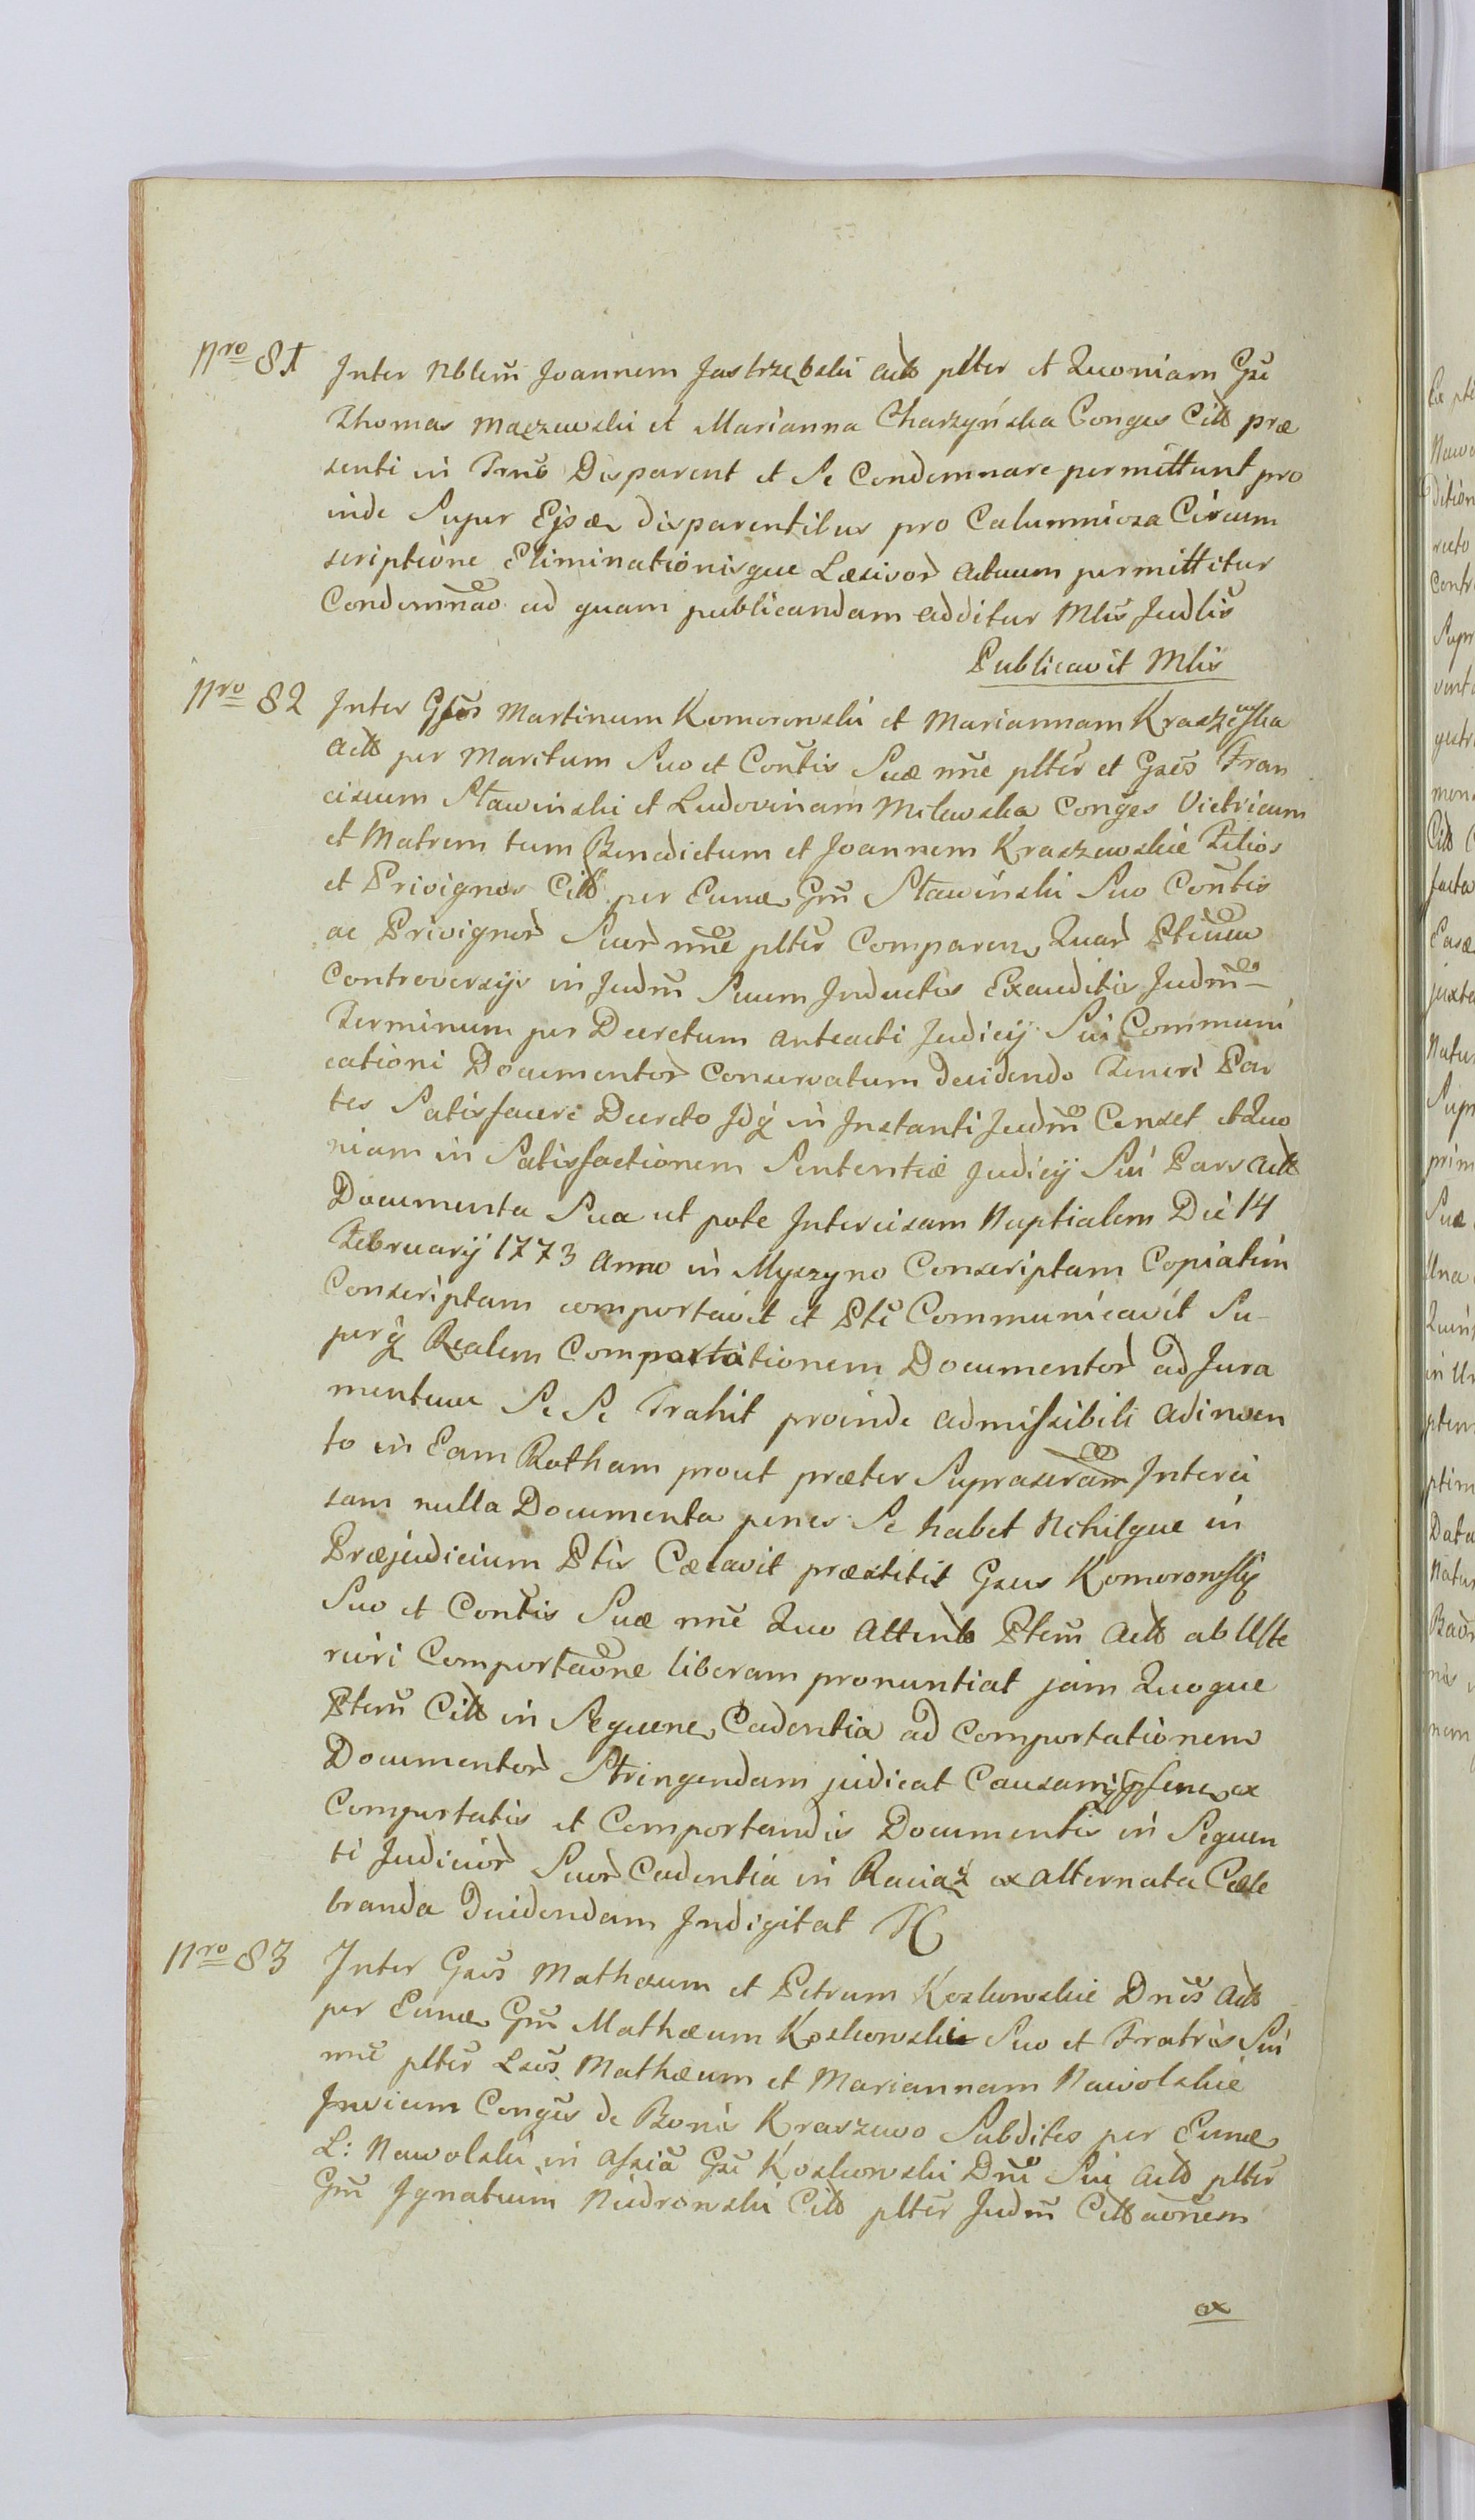 Nro 81 Inter Nblem̃ Joannem Jastrzębski act͠t plter et Quoniam Gsi
Thomas Mączewski et Marianna Charzyńska Conges Citt præ
senti in Trnõ Disparent et Se Condemnare permittunt pro
inde Super Ejsdem disparentibus pro Calumniosa Circum
scriptione Eliminationisque Læsivor̃ actuum permittitur
Condemnão ad quam publicandam additur Mlis Judlis
Publicavit Mlis
Nro 82 Inter Gsõs Martinum Komorowski et Mariannam Kraszewska
actt per Maritum Suo et Contis Suæ nñe plter et Gsẽs Fran
ciscum Stawinski et Ludovinam Milewska Conges Victricum
et Matrem tum Benedictum et Joannem Kraszewskie Filios
et Privignos Citt per Eumd Gm̃ Stawinski Suo Contis
ac Privignor̃ Suor̃ nñe plter Comparen Quar̃ Ptium
Controversijs in Judm̃ Suum Inductis Exauditis Judm̃
Terminum per Decretum anteacti Judicij Sui Communi
cationi Documentor̃ Conservatum decidendo Teneri Par
tes Satisfacere Decreto Idq in Instanti Judm̃ Censet et Quo
niam in Satisfactionem Sententiæ Judicij Sui Pars actt
Documenta Sua ut pote Intercisam Nuptialem Die 14
Februarij 1773 Anno in Myszyno Conscriptam Copiatim
Conscriptam comportavit et Pti Communicavit Su-
perq Realem Comportationem Documentor̃ ad Jura
mentum Se Se Trahit proinde admissibili adinven
to in Eam Rotham prout præter Suprascram Interci
sam nulla Documenta penes Se habet Nihilque in
Præjudicium Ptis Cælavit præstitit Gsus Komorowski
Suo et Contis Suæ nñe Quo attento Ptem̃ actt ab Ulte
riori Comportaõne liberam pronuntiat jam Quoque
Ptem̃ Citt in Sequen Cadentia ad Comportationem
Documentor̃ Stringendam judicat Causamq psen ex
Comportatis et Comportandis Documentis in Sequen
ti Judicior̃ Suor̃ Cadentia in Raciąż ex alternata Cele
branda Decidendam Indigitat
Nro 83 Inter Gsos Mathæum et Petrum Kozłowskie Dnõs actt
per Eumd Gm̃ Mathæum Kozłowski Suo et Fratris Sui
nñe plter Lsos Mathæum et Mariannam Nawolskie
Invicem Conges de Bonis Kraszewo Subditos per Eumd
L: Nawolski in assia Gsi Kozłowski Dni Sui actt plter
Gm̃ Ignatium Niedrowski Citt plter Judm̃ Cittaonem
ex